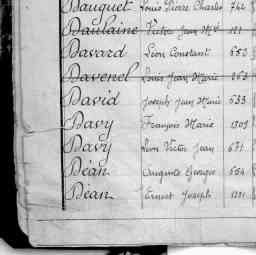 Dauquet Louis Pierre Charles 742
Daulaine Victor Jean Mie
Davard Léon Constant 652
Davenel Louis Jean Marie 263
David Joseph Jean Marie 633
Davy François Marie 1309
Davy Léon Victor Jean 671
Déan Auguste Georges 654
Déan Ernest Joseph